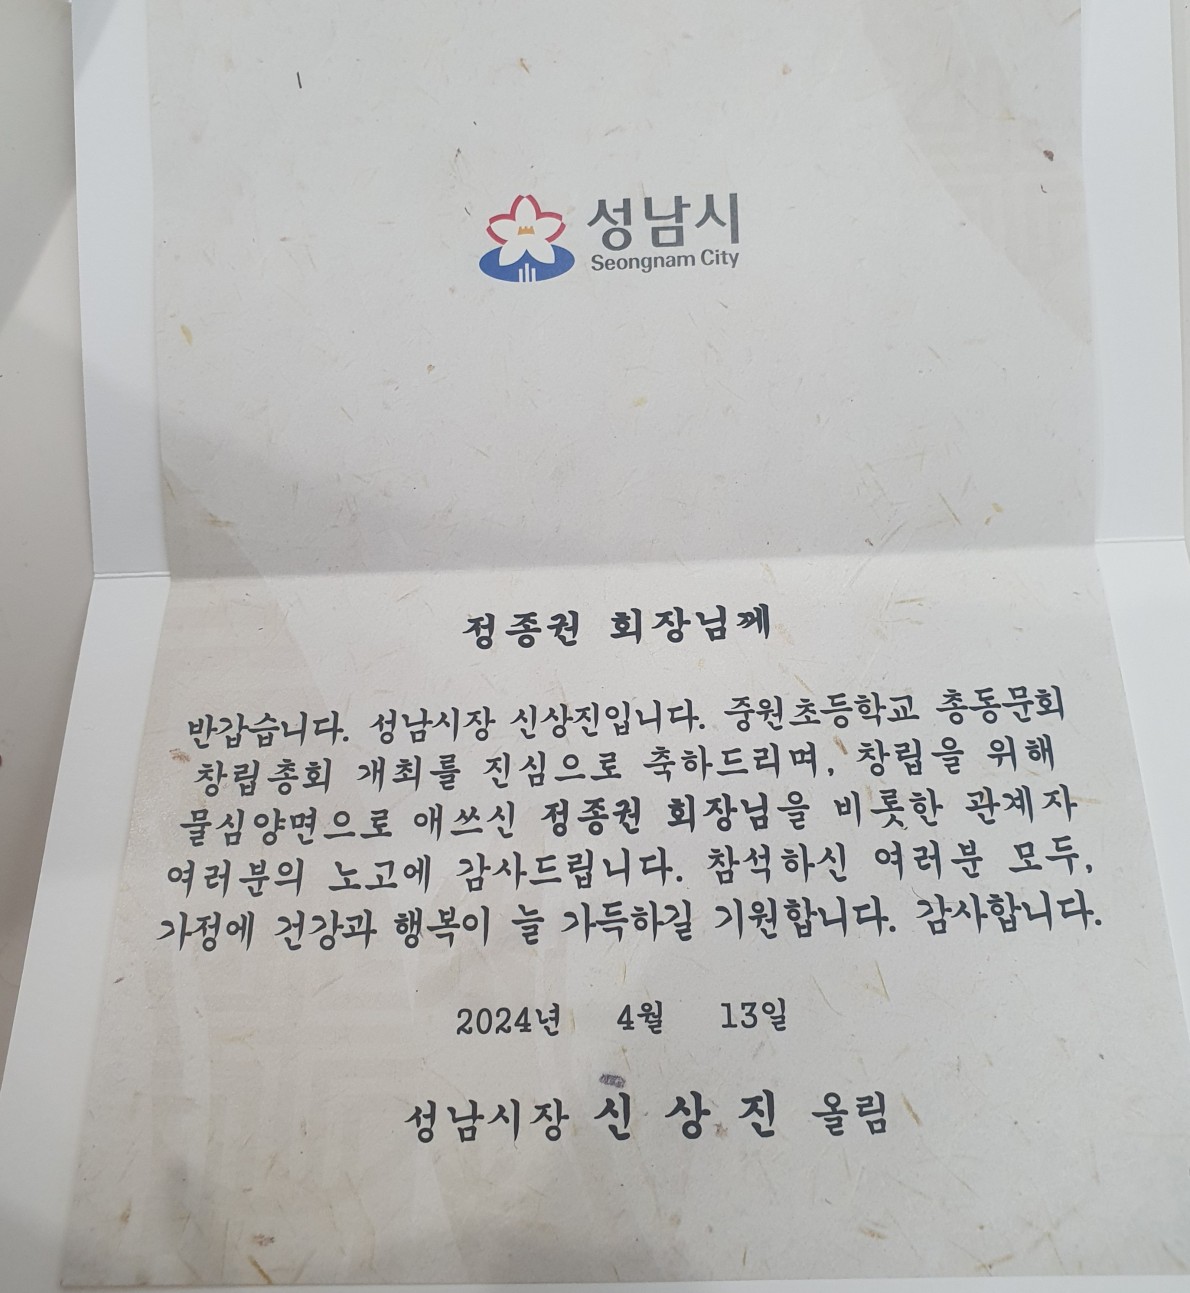 성남시
Seongnam City
정종권 회장님께
반갑습니다. 성남시장 신상진입니다. 중원초등학교 총동문회
창립총회 개최를 진심으로 축하드리며, 창립을 위해
물심양면으로 애쓰신 정종권 회장님을 비롯한 관계자
여러분의 노고에 감사드립니다. 참석하신 여러분 모두,
가정에 건강과 행복이 늘 가득하길 기원합니다. 감사합니다.
2024년 4월 13일
성남시장 신 상 진 올림